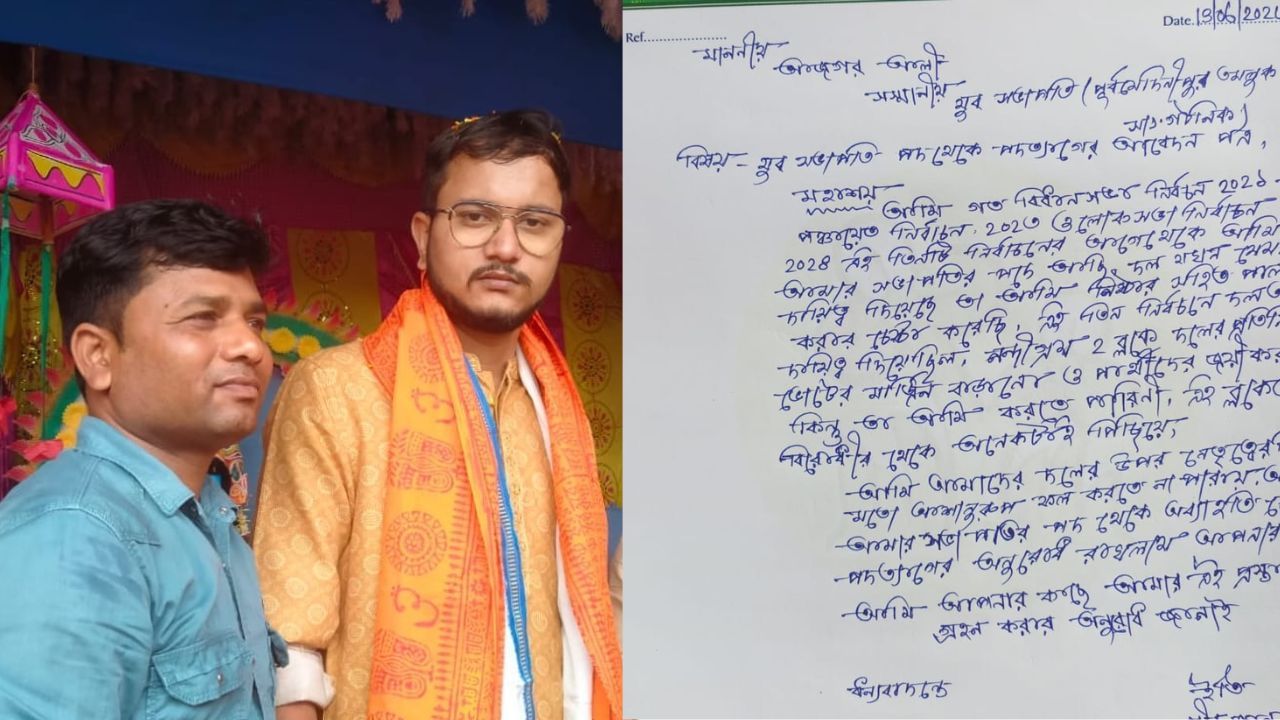 Ref.
Date. 19/06/202
মাননীয়
আজগর আলী
সম্মানীয় যুব সভাপতি (পূর্বমেদিনীপুর তমলুক
সাংগঠনিক)
বিষয় - যুব সভাপতি পদ থেকে পদত্যাগের আবেদন পত্র,
মহাশয়
আমি গত বিধানসভা নির্বাচন 2021
পঞ্চায়েত নির্বাচন, 2023 ও লোকসভা নির্বাচন
2024 এই তিনটি নির্বাচনের আগে থেকে আমি
আমার সভাপতির পদে আছি দল যখন যেমন
দায়িত্ব দিয়েছে তা আমি নিষ্ঠার সহিত পালন
করার চেষ্টা করেছি, এই তিন নির্বাচনে দল
দায়িত্ব দিয়েছিল, নন্দীগ্রাম 2 ব্লকে দলের
ভোটের মার্জিন বাড়ানো ও প্রার্থীদের জয়ী
কিন্তু তা আমি করতে পারিনী, এই ব্লকে
বিরোধীর থেকে অনেকটাই পিছিয়ে,
আমি আমাদের দলের উপর নেতৃত্বের
মতো আশানুরূপ ফল করতে না পারায়,
আমার সভাপতির পদ থেকে অব্যাহতি
পদত্যাগের অনুরোধ রাখলাম আপনার
আমি আপনার কাছে আমার এই প্রস্তা
গ্রহন করার অনুরোধ জানাই
ধন্যবাদান্তে